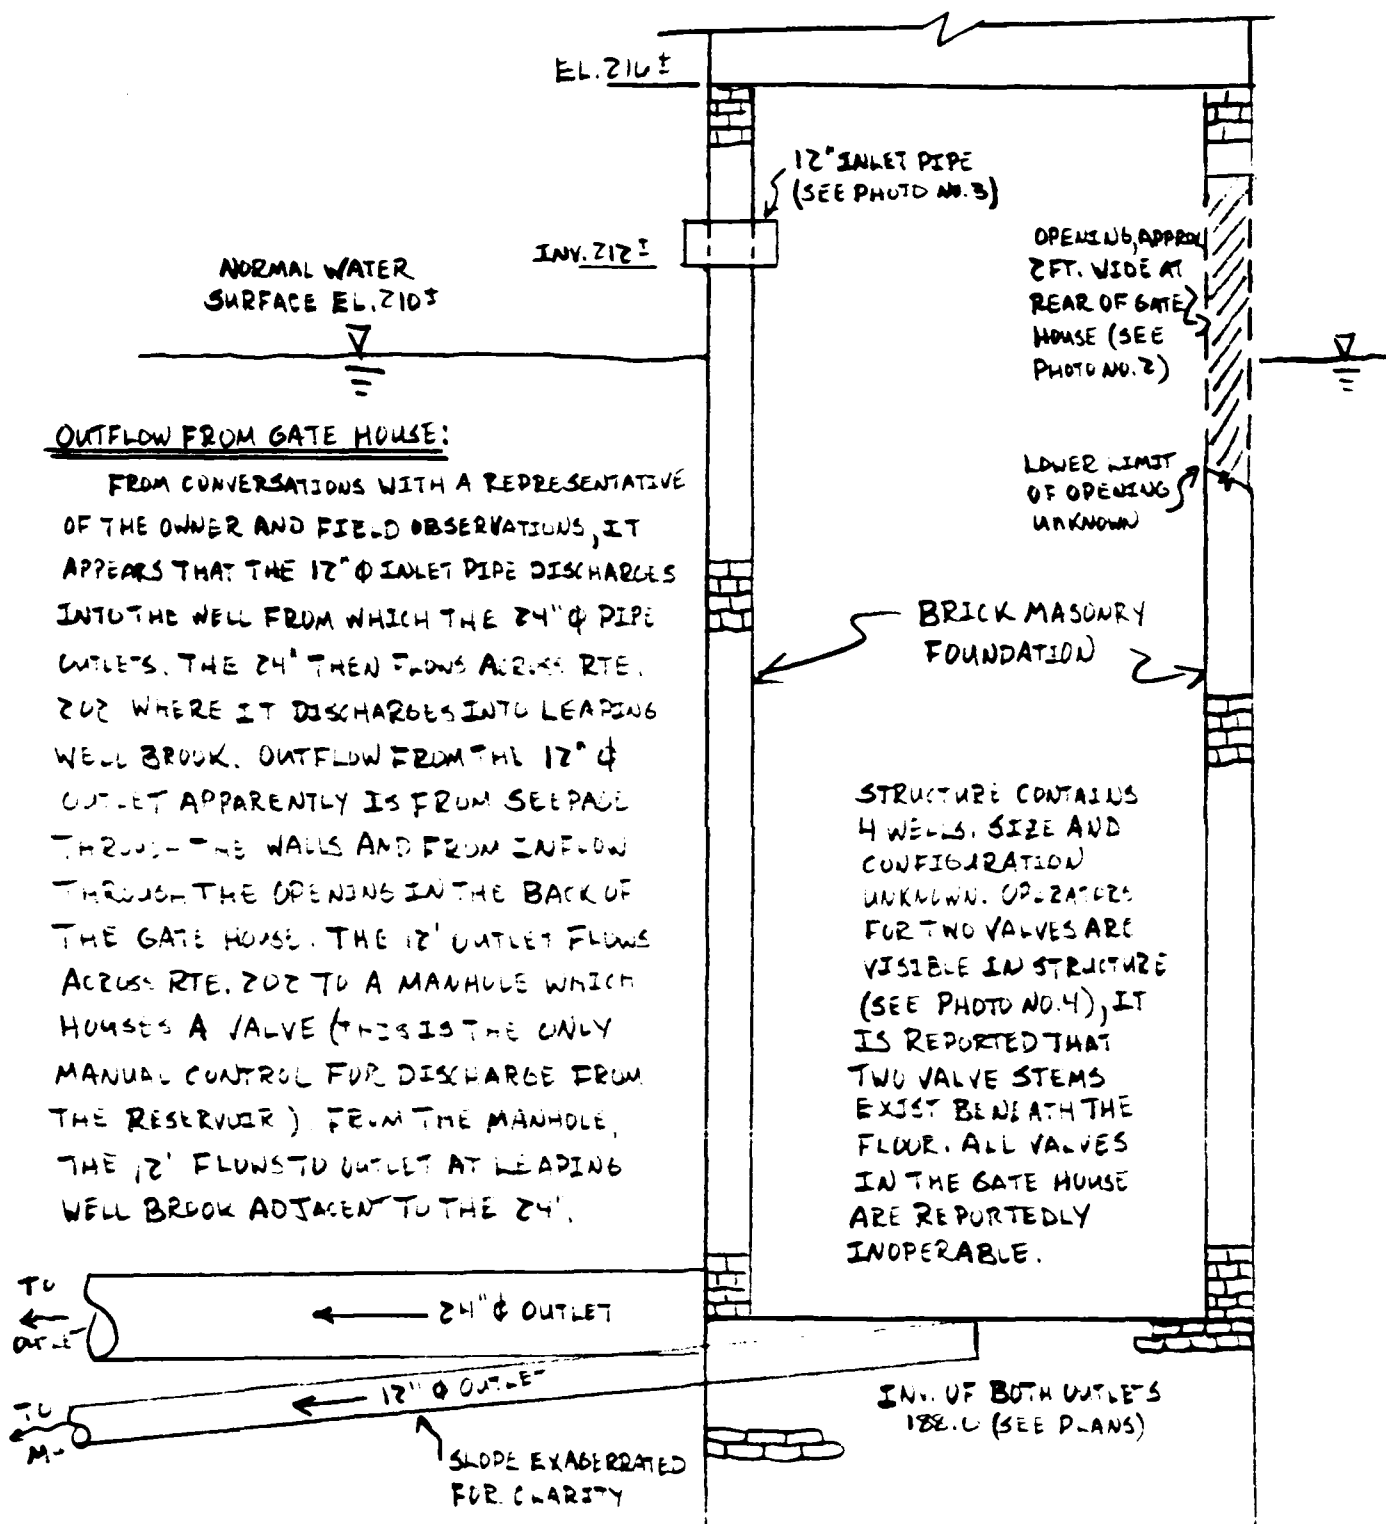 EL. 216±
12" INLET PIPE
(SEE PHOTO NO. 3)
INV. 212±
NORMAL WATER
SURFACE EL. 210±
OPENING, APPROX
2FT. WIDE AT
REAR OF GATE
HOUSE (SEE
PHOTO NO. 2)
LOWER LIMIT
OF OPENING
UNKNOWN
OUTFLOW FROM GATE HOUSE:
FROM CONVERSATIONS WITH A REPRESENTATIVE
OF THE OWNER AND FIELD OBSERVATIONS, IT
APPEARS THAT THE 12" Φ INLET PIPE DISCHARGES
INTO THE WELL FROM WHICH THE 24" Φ PIPE
OUTLETS. THE 24" THEN FLOWS ACROSS RTE.
202 WHERE IT DISCHARGES INTO LEAPING
WELL BROOK. OUTFLOW FROM THE 12" Φ
OUTLET APPARENTLY IS FROM SEEPAGE
THROUGH THE WALLS AND FROM INFLOW
THROUGH THE OPENING IN THE BACK OF
THE GATE HOUSE. THE 12" OUTLET FLOWS
ACROSS RTE. 202 TO A MANHOLE WHICH
HOUSES A VALVE (THIS IS THE ONLY
MANUAL CONTROL FOR DISCHARGE FROM
THE RESERVOIR) FROM THE MANHOLE,
THE 12" FLOWS TO OUTLET AT LEAPING
WELL BROOK ADJACENT TO THE 24".
BRICK MASONRY
FOUNDATION
STRUCTURE CONTAINS
4 WELLS. SIZE AND
CONFIGURATION
UNKNOWN. OPERATORS
FOR TWO VALVES ARE
VISIBLE IN STRUCTURE
(SEE PHOTO NO. 4), IT
IS REPORTED THAT
TWO VALVE STEMS
EXIST BENEATH THE
FLOOR. ALL VALVES
IN THE GATE HOUSE
ARE REPORTEDLY
INOPERABLE.
TO
OUTLET
24" Φ OUTLET
12" Φ OUTLET
TO
INV. OF BOTH OUTLETS
188.0 (SEE PLANS)
SLOPE EXAGERRATED
FOR CLARITY